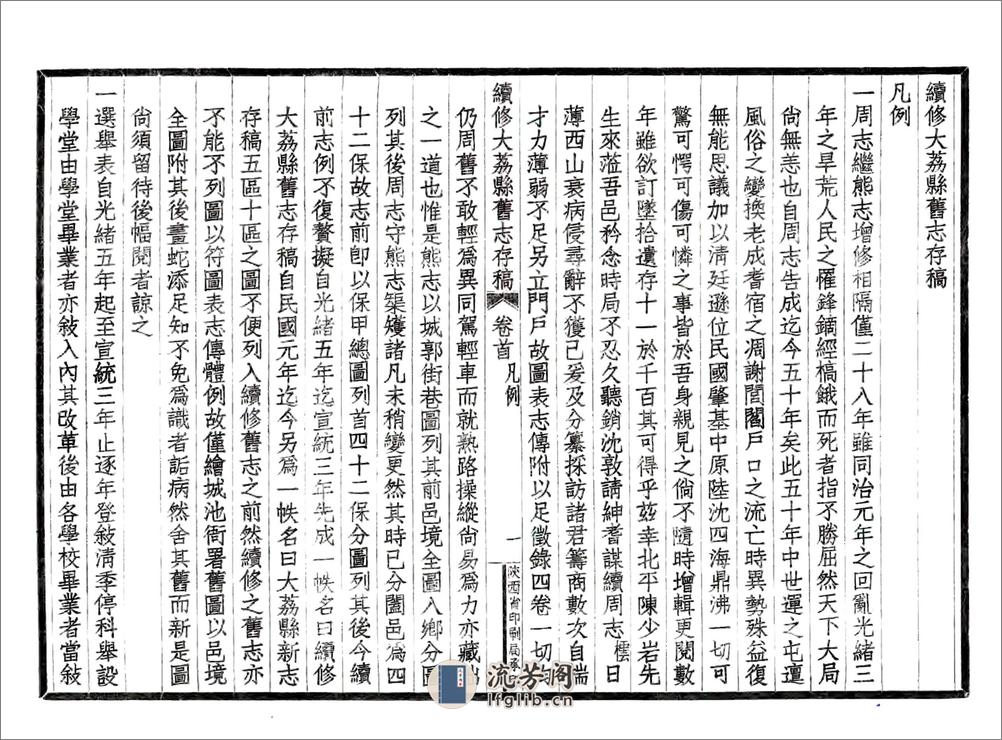 續修大荔縣舊志存稿
凡例
一周志繼熊志增修相隔僅二十八年雖同治元年之回亂光緒三
年之旱荒人民之罹鋒鏑經槁餓而死者指不勝屈然天下大局
尙無恙也自周志告成迄今五十年矣此五十年中世運之屯邅
風俗之變換老成耆宿之凋謝閭閻戶口之流亡時異勢殊益復
無能思議加以淸廷遜位民國肇基中原陸沈四海鼎沸一切可
驚可愕可傷可憐之事皆於吾身親見之倘不隨時增輯更閱數
年雖欲訂墜拾遺存十一於千百其可得乎玆幸北平陳少岩先
生來蒞吾邑矜念時局不忍久聽銷沈敦請紳耆謀續周志樰日
薄西山衰病侵尋辭不獲已爰及分纂採訪諸君籌商數次自耑
才力薄弱不足另立門戶故圖表志傳附以足徵錄四卷一切
續修大荔縣舊志存稿
卷首
凡例
一
陝西省印刷局承
仍周舊不敢輕爲異同駕輕車而就熟路操縱尙易爲力亦藏
之一道也惟是熊志以城郭街巷圖列其前邑境全圖入鄕分圖
列其後周志守熊志榘矱諸凡未稍變更然其時已分闔邑爲四
十二保故志前卽以保甲總圖列首四十二保分圖列其後今續
前志例不復贅擬自光緒五年迄宣統三年先成一帙名曰續修
大荔縣舊志存稿自民國元年迄今另爲一帙名曰大荔縣新志
存稿五區十區之圖不便列入續修舊志之前然續修之舊志亦
不能不列圖以符圖表志傳體例故僅繪城池衙署舊圖以邑境
全圖附其後畫蛇添足知不免爲識者詬病然舍其舊而新是圖
尙須留待後幅閱者諒之
一選舉表自光緒五年起至宣統三年止逐年登敍淸季停科舉設
學堂由學堂畢業者亦敍入內其改革後由各學校畢業者當敍
流芳阁
lfglib.cn